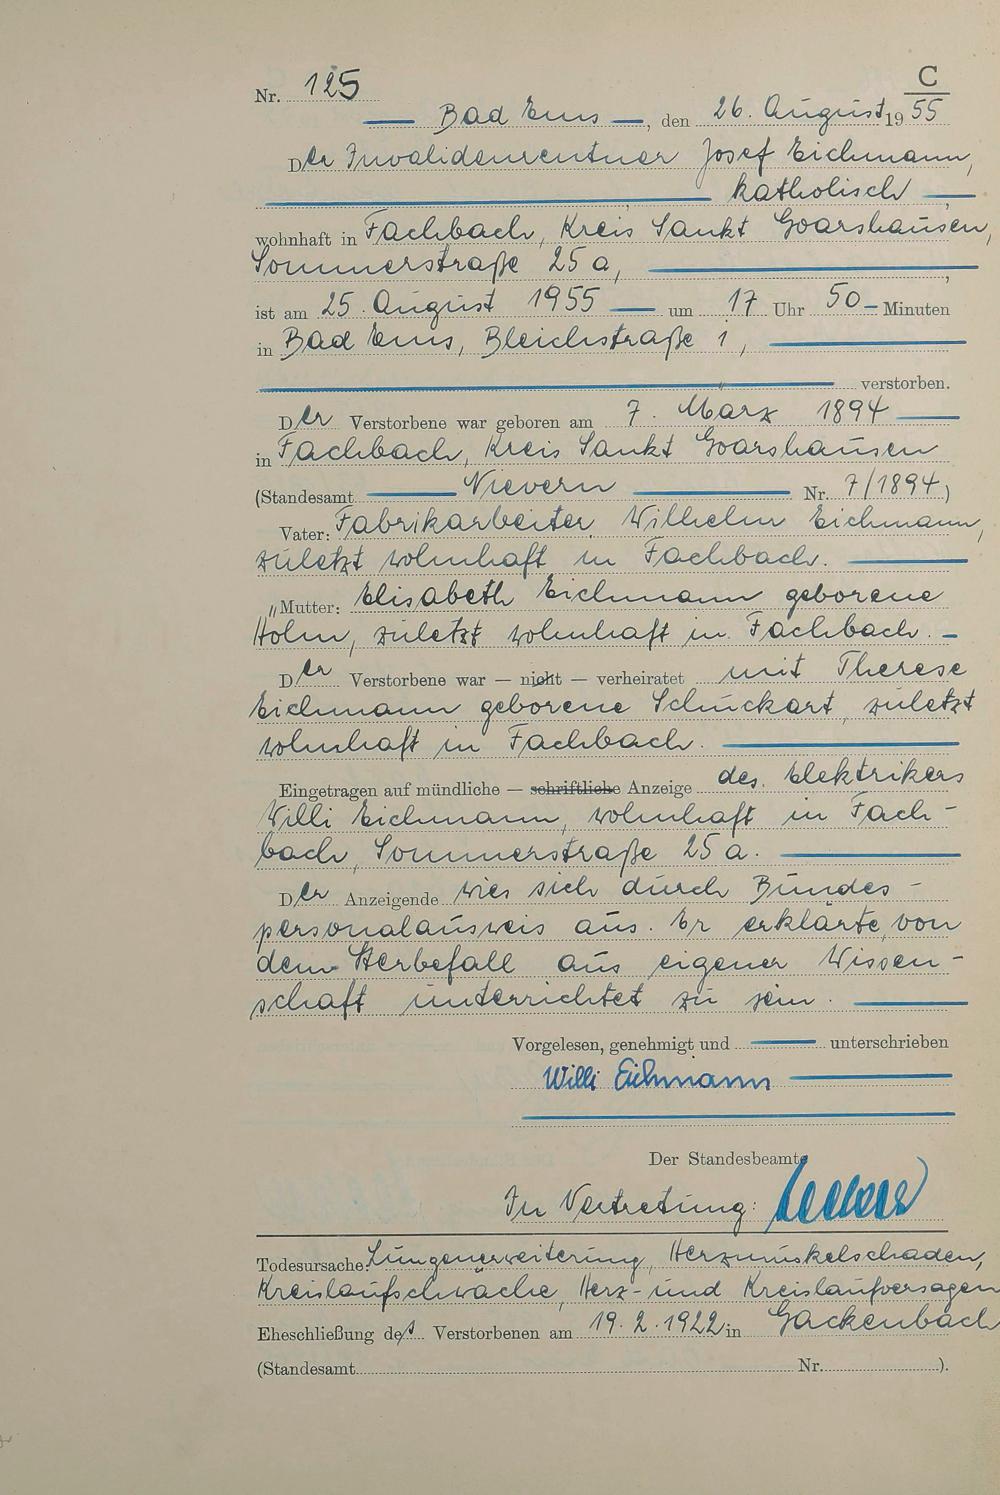 C
Nr. 125
Bad Ems, den 26. August 1955
Der Invalidenrentner Josef Eichmann,
katholisch
wohnhaft in Fachbach, Kreis Sankt Goarshausen,
Sommerstraße 25 a,
ist am 25. August 1955 um 17 Uhr 50 Minuten
in Bad Ems, Bleichstraße 1,
verstorben.
Der Verstorbene war geboren am 7. März 1894
in Fachbach, Kreis Sankt Goarshausen
(Standesamt Nievern Nr. 7/1894)
Vater: Fabrikarbeiter Wilhelm Eichmann,
zuletzt wohnhaft in Fachbach.
Mutter: Elisabeth Eichmann geborene
Holm, zuletzt wohnhaft in Fachbach.
Der Verstorbene war — nicht — verheiratet mit Therese
Eichmann geborene Schuckart, zuletzt
wohnhaft in Fachbach.
Eingetragen auf mündliche — schriftliche Anzeige des Elektrikers
Willi Eichmann, wohnhaft in Fach-
bach, Sommerstraße 25 a.
Der Anzeigende wies sich durch Bundes-
personalausweis aus. Er erklärte, von
dem Sterbefall aus eigener Wissen-
schaft unterrichtet zu sein.
Vorgelesen, genehmigt und unterschrieben
Willi Eichmann
Der Standesbeamte
In Vertretung:
Todesursache: Lungenerweiterung, Herzmuskelschaden,
Kreislaufschwäche, Herz- und Kreislaufversagen
Eheschließung des Verstorbenen am 19.2.1922 in Gackenbach
(Standesamt Nr. ).